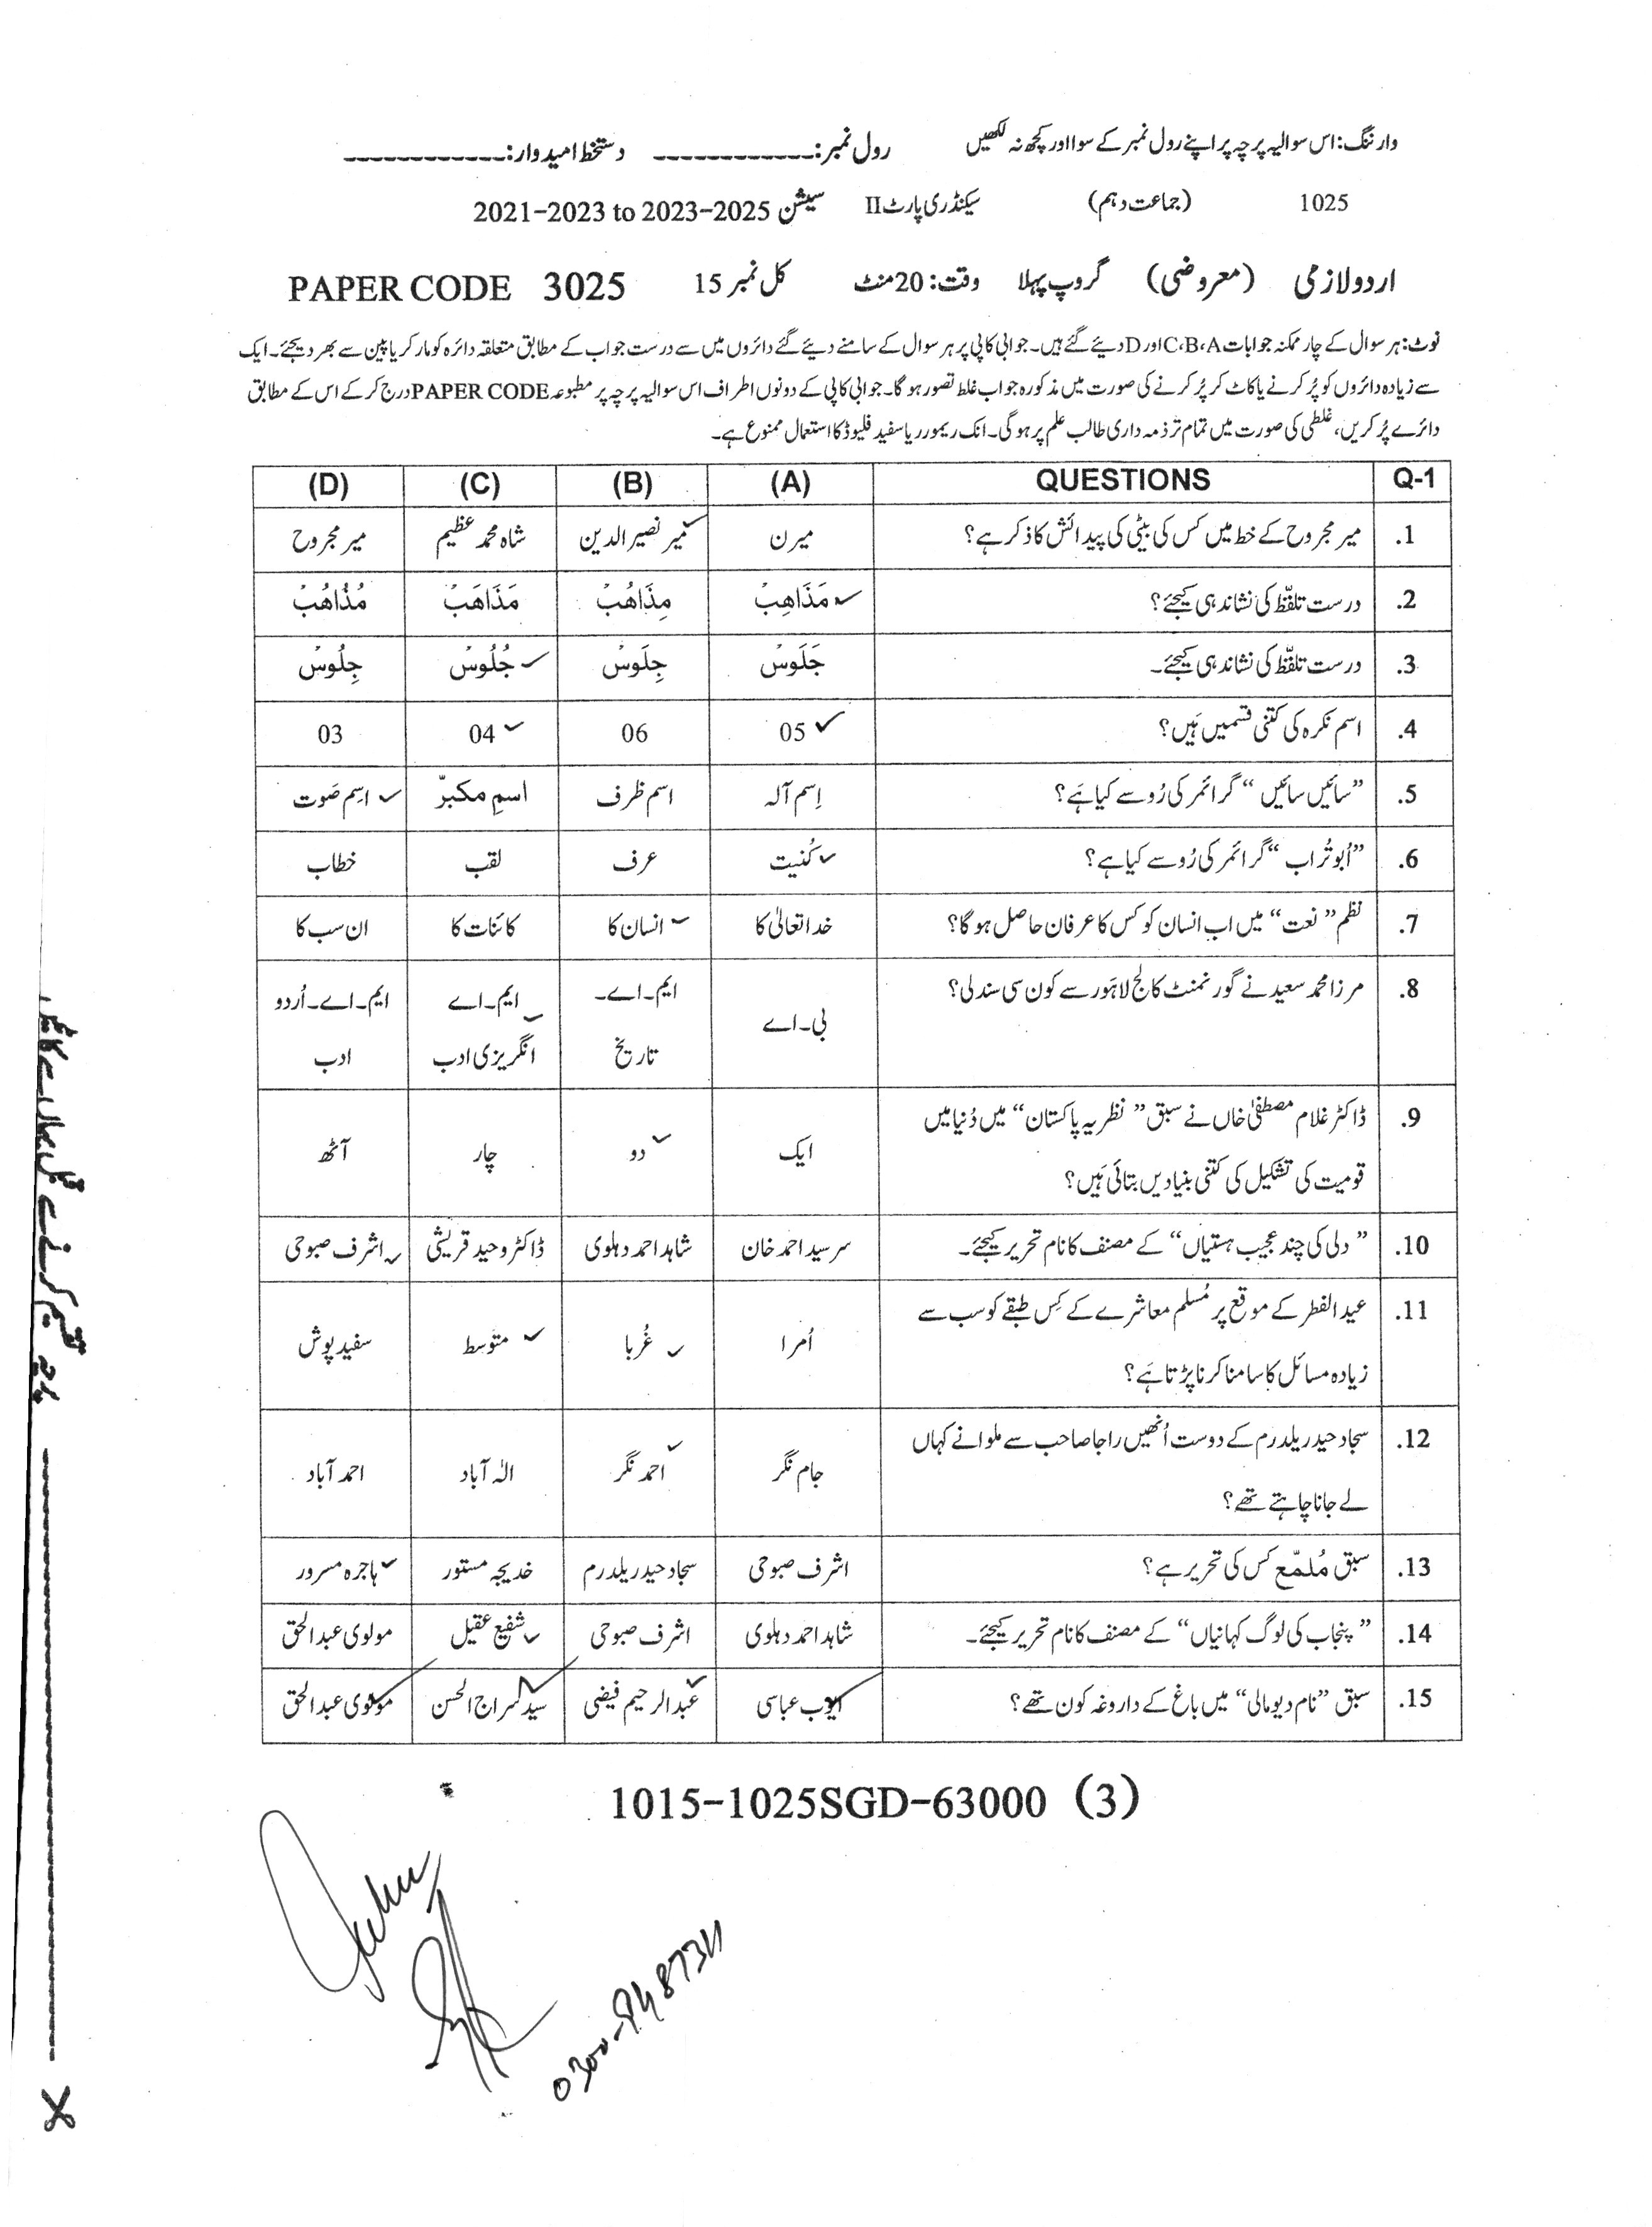 وارننگ: اس سوالیہ پرچہ پر اپنے رول نمبر کے سوا اور کچھ نہ لکھیں رول نمبر:____________ دستخط امیدوار:____________
1025 (جماعت دہم) سیکنڈری پارٹ II سیشن 2021-2023 to 2023-2025
اردو لازمی (معروضی) گروپ پہلا وقت: 20 منٹ کل نمبر 15 PAPER CODE 3025
نوٹ: ہر سوال کے چار ممکنہ جوابات A،B،C اور D دیئے گئے ہیں۔ جوابی کاپی پر ہر سوال کے سامنے دیئے گئے دائروں میں سے درست جواب کے مطابق متعلقہ دائرہ کو مارکر یا پین سے بھر دیجئے۔ ایک
سے زیادہ دائروں کو پُر کرنے یا کاٹ کر پُر کرنے کی صورت میں مذکورہ جواب غلط تصور ہوگا۔ جوابی کاپی کے دونوں اطراف اس سوالیہ پرچہ پر مطبوعہ PAPER CODE درج کر کے اس کے مطابق
دائرے پُر کریں، غلطی کی صورت میں تمام تر ذمہ داری طالب علم پر ہوگی۔ انک ریموور یا سفید فلیوڈ کا استعمال ممنوع ہے۔
Q-1 QUESTIONS (A) (B) (C) (D)
1. میر مجروح کے خط میں کس کی بیٹی کی پیدائش کا ذکر ہے؟ میرن میر نصیر الدین شاہ محمد عظیم میر مجروح
2. درست تلفّظ کی نشاندہی کیجئے؟ مَذَاہِبْ مِذَاہُبْ مَذَاہَبْ مُذَاہُبْ
3. درست تلفّظ کی نشاندہی کیجئے۔ جَلَوسْ جِلَوسْ جُلُوسْ جِلُوسْ
4. اسم نکرہ کی کتنی قسمیں ہَیں؟ 05 06 04 03
5. ”سائیں سائیں“ گرائمر کی رُو سے کیا ہَے؟ اِسم آلہ اسم ظرف اسمِ مکبّر اسِم صَوت
6. ”اُبو تُراب“ گرائمر کی رُو سے کیا ہے؟ کُنیت عرف لقب خطاب
7. نظم ”نعت“ میں اب انسان کو کس کا عرفان حاصل ہوگا؟ خدا تعالیٰ کا انسان کا کائنات کا ان سب کا
8. مرزا محمد سعید نے گورنمنٹ کالج لاہَور سے کون سی سند لی؟ بی۔اے ایم۔اے۔ تاریخ ایم۔اے انگریزی ادب ایم۔اے۔اُردو ادب
9. ڈاکٹر غلام مصطفیٰ خاں نے سبق ”نظریہ پاکستان“ میں دُنیا میں
قومیت کی تشکیل کی کتنی بنیادیں بتائی ہَیں؟ ایک دو چار آٹھ
10. ”دلی کی چند عجیب ہستیاں“ کے مصنف کا نام تحریر کیجئے۔ سر سید احمد خان شاہد احمد دہلوی ڈاکٹر وحید قریشی اشرف صبوحی
11. عید الفطر کے موقع پر مُسلم معاشرے کے کِس طبقے کو سب سے
زیادہ مسائل کا سامنا کرنا پڑتا ہَے؟ اُمرا غُربا متوسط سفید پوش
12. سجاد حیدر یلدرم کے دوست اُنھیں راجا صاحب سے ملوانے کہاں
لے جانا چاہتے تھے؟ جام نگر احمد نگر الٰہ آباد احمد آباد
13. سبق مُلمّع کس کی تحریر ہے؟ اشرف صبوحی سجاد حیدر یلدرم خدیجہ مستور ہاجرہ مسرور
14. ”پنجاب کی لوگ کہانیاں“ کے مصنف کا نام تحریر کیجئے۔ شاہد احمد دہلوی اشرف صبوحی شفیع عقیل مولوی عبدالحق
15. سبق ”نام دیو مالی“ میں باغ کے داروغہ کون تھے؟ ایوب عباسی عبدالرحیم فیضی سید سراج الحسن مولوی عبدالحق
1015-1025SGD-63000 (3)
پرچہ تقسیم کرنے سے قبل یہاں سے کاٹیں